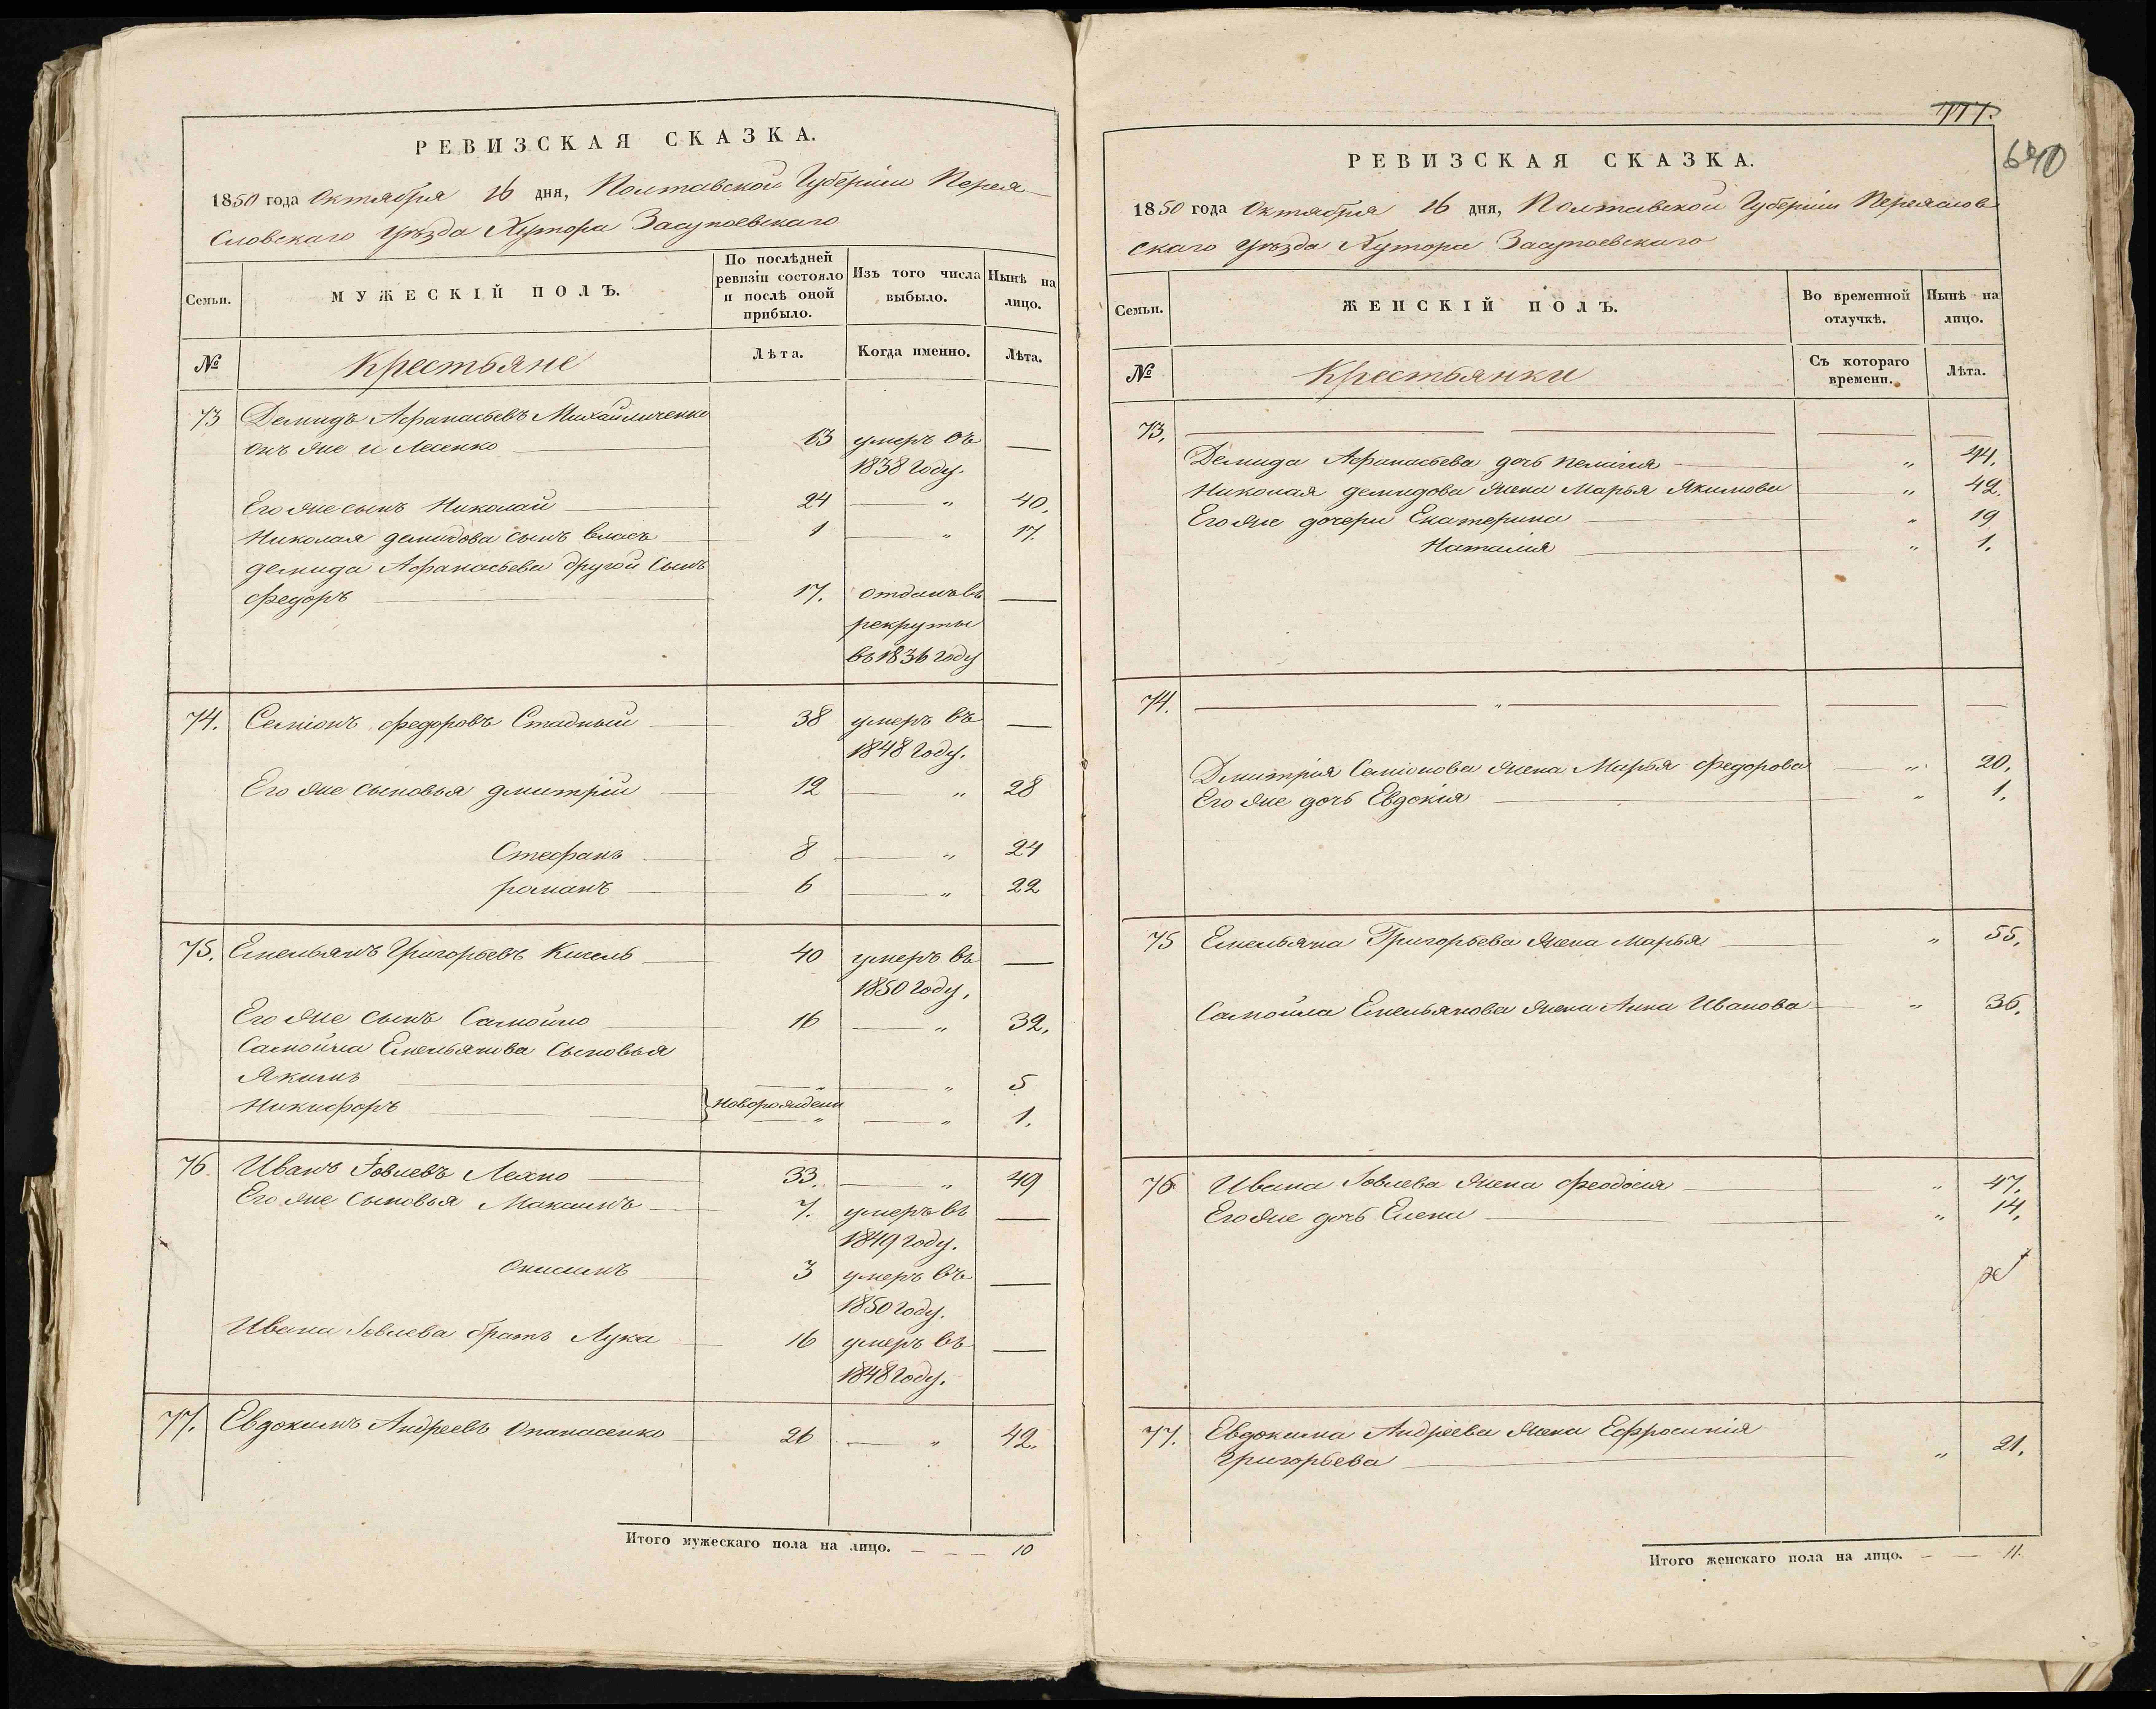 РЕВИЗСКАЯ СКАЗКА.
1850 года Октября 16 дня, Полтавской Губерніи Перея
словскаго уѣзда Хутора Засупоевскаго
Семьи.
МУЖЕСКІЙ ПОЛЪ.
По послѣдней ревизіи состояло и послѣ оной прибыло.
Изъ того числа выбыло.
Нынѣ на лицо.
№
Крестьяне
Лѣта.
Когда именно.
Лѣта.
73 Демидъ Афанасьевъ Михайличенко
онъ же и Лесенко — 63 умеръ въ —
1838 году.
Его же сынъ Николай — 24 — " 40.
Николая демидова сынъ власъ — 1 — " 17.
демида Афанасьева другой сынъ
федоръ — 17. отданъ въ —
рекруты
въ 1836 году
74. Семіонъ федоровъ Стадный — 38 умеръ въ —
1848 году.
Его же сыновья дмитрій — 12 — " 28
Стефанъ — 8 — " 24
романъ — 6 — " 22
75. Емельянъ Григорьевъ Кисель — 40 умеръ въ —
1850 году.
Его же сынъ Самойло — 16 — " 32.
Самойла Емельянова сыновья
Якимъ — " — " 5
Никифоръ — } новорождени " — " 1.
76. Иванъ Іовлевъ Лехно — 33. — " 49
Его же сыновья Максимъ — 7. умеръ въ —
1849 году.
Онисимъ — 3 умеръ въ —
1850 году.
Ивана Іовлева братъ Лука — 16 умеръ въ —
1848 году.
77. Евдокимъ Андреевъ Опанасенко — 26 — " 42.
Итого мужескаго пола на лицо. — — — 10
777.
640
РЕВИЗСКАЯ СКАЗКА.
1850 года Октября 16 дня, Полтавской Губерніи Переяслов
скаго уѣзда Хутора Засупоевскаго
Семьи.
ЖЕНСКІЙ ПОЛЪ.
Во временной отлучкѣ.
Нынѣ на лицо.
№
Крестьянки
Съ котораго времени.
Лѣта.
73. — — — —
Демида Афанасьева дочь — " 44.
Николая демидова жена Марья Якимова — " 42.
Его же дочери Екатерина — " 19
Наталия — " 1.
74. — " — — —
Дмитрія Семіонова жена Марья федорова — " 20.
Его же дочь Евдокія — " 1.
75 Емельяна Григорьева жена марья — " 55.
Самойла Емельянова жена Анна Иванова — " 36.
76 Ивана Іовлева жена феодосія — " 47.
Его же дочь Елена — " 14.
77. Евдокима Андреева жена Ефросинія
Григорьева — " 21.
Итого женскаго пола на лицо. — — 11.